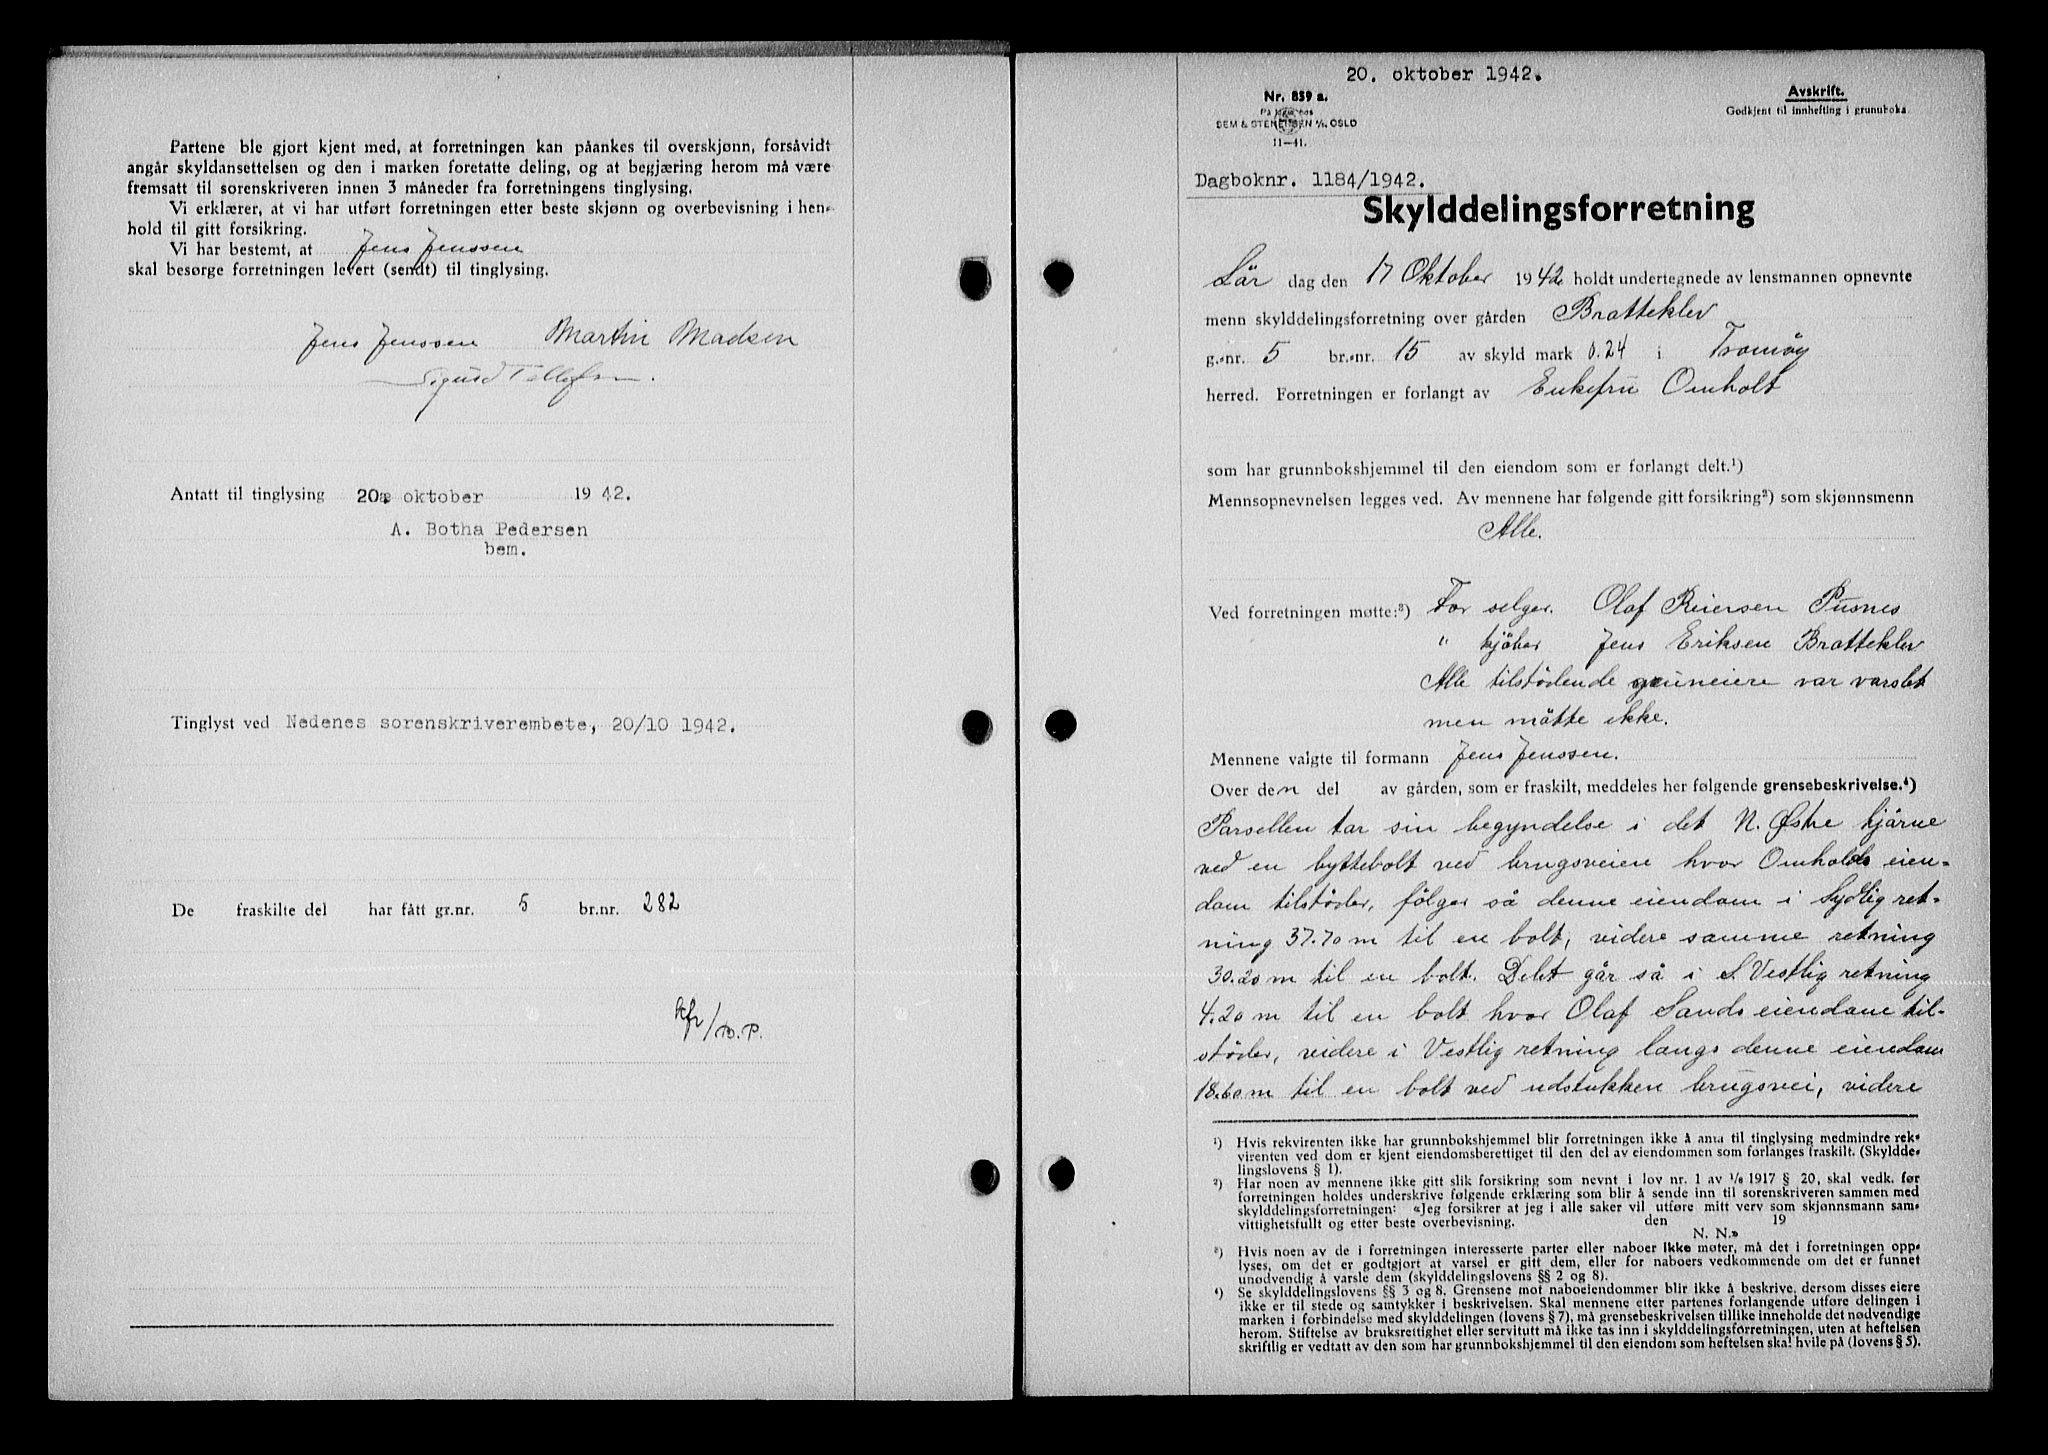 Partene ble gjort kjent med, at forretningen kan påankes til overskjønn, forsåvidt
angår skyldansettelsen og den i marken foretatte deling, og at begjæring herom må være
fremsatt til sorenskriveren innen 3 måneder fra forretningens tinglysing.
Vi erklærer, at vi har utført forretningen etter beste skjønn og overbevisning i hen-
hold til gitt forsikring.
Vi har bestemt, at Jens Jenssen
skal besørge forretningen levert (sendt) til tinglysing.
Jens Jenssen Martin Madsen
Sigurd Tellefsen.
Antatt til tinglysing 20. oktober 1942.
A. Botha Pedersen
bem.
Tinglyst ved Nedenes sorenskriverembete, 20/10 1942.
De fraskilte del har fått gr.nr. 5 br.nr. 282
Kfr/B.P.
20. oktober 1942.
Nr. 859 a.
SEM & STENERSEN A/S OSLO
11-41.
Avskrift.
Godkjent til innhefting i grunnboka.
Dagboknr. 1184/1942.
Skylddelingsforretning
Lör dag den 17 Oktober 1942 holdt undertegnede av lensmannen opnevnte
menn skylddelingsforretning over gården Brattekley
g.-nr. 5 br.-nr. 15 av skyld mark 0.24 i Tromöy
herred. Forretningen er forlangt av Enkefru Omholt
som har grunnbokshjemmel til den eiendom som er forlangt delt.¹)
Mennsopnevnelsen legges ved. Av mennene har følgende gitt forsikring²) som skjønnsmenn
Alle.
Ved forretningen møtte:³) For selger. Olaf Reiersen Pusnes
" kjöber Jens Eriksen Bratteklev
Alle tilstödende gruneiere var varslet
men mötte ikke.
Mennene valgte til formann Jens Jenssen.
Over den del av gården, som er fraskilt, meddeles her følgende grensebeskrivelse.⁴)
Parsellen tar sin begyndelse i det N. Østre hjörne
ved en byttebolt ved brugsveien hvor Omholds eien-
dom tilstöder, fölger så denne eiendom i Sydlig ret-
ning 37.70 m til en bolt, videre samme retning
30.20 m til en bolt. Delet går så i S. Vestlig retning
4.20 m til en bolt hvor Olaf Sands eiendom til-
stöder, videre i Vestlig retning langs denne eiendom
18.60 m til en bolt ved udstukken brugsvei, videre
¹) Hvis rekvirenten ikke har grunnbokshjemmel blir forretningen ikke å anta til tinglysing medmindre rek-
virenten ved dom er kjent eiendomsberettiget til den del av eiendommen som forlanges fraskilt. (Skyldde-
lingslovens § 1).
²) Har noen av mennene ikke gitt slik forsikring som nevnt i lov nr. 1 av 1/6 1917 § 20, skal vedk. før
forretningen holdes underskrive følgende erklæring som blir å sende inn til sorenskriveren sammen med
skylddelingsforretningen: «Jeg forsikrer at jeg i alle saker vil utføre mitt verv som skjønnsmann sam-
vittighetsfullt og etter beste overbevisning. den 19
N. N.»
³) Hvis noen av de i forretningen interesserte parter eller naboer ikke møter, må det i forretningen opp-
lyses, om det er godtgjort at varsel er gitt dem, eller for naboers vedkommende om det er funnet
unødvendig å varsle dem (skylddelingslovens §§ 2 og 8).
⁴) Se skylddelingslovens §§ 3 og 8. Grensene mot naboeiendommer blir ikke å beskrive, dersom disses eiere
ikke er til stede og samtykker i beskrivelsen. Skal mennene etter partenes forlangende utføre delingen i
marken i forbindelse med skylddelingen (lovens § 7), må grensebeskrivelsen tillike inneholde det nødvendige
herom. Stiftelse av bruksrettighet eller servitutt må ikke tas inn i skylddelingsforretningen, uten at heftelsen
skriftlig er vedtatt av den som har grunnbokshjemmel til den eiendom som heftelsen skal hvile på (lovens § 5).